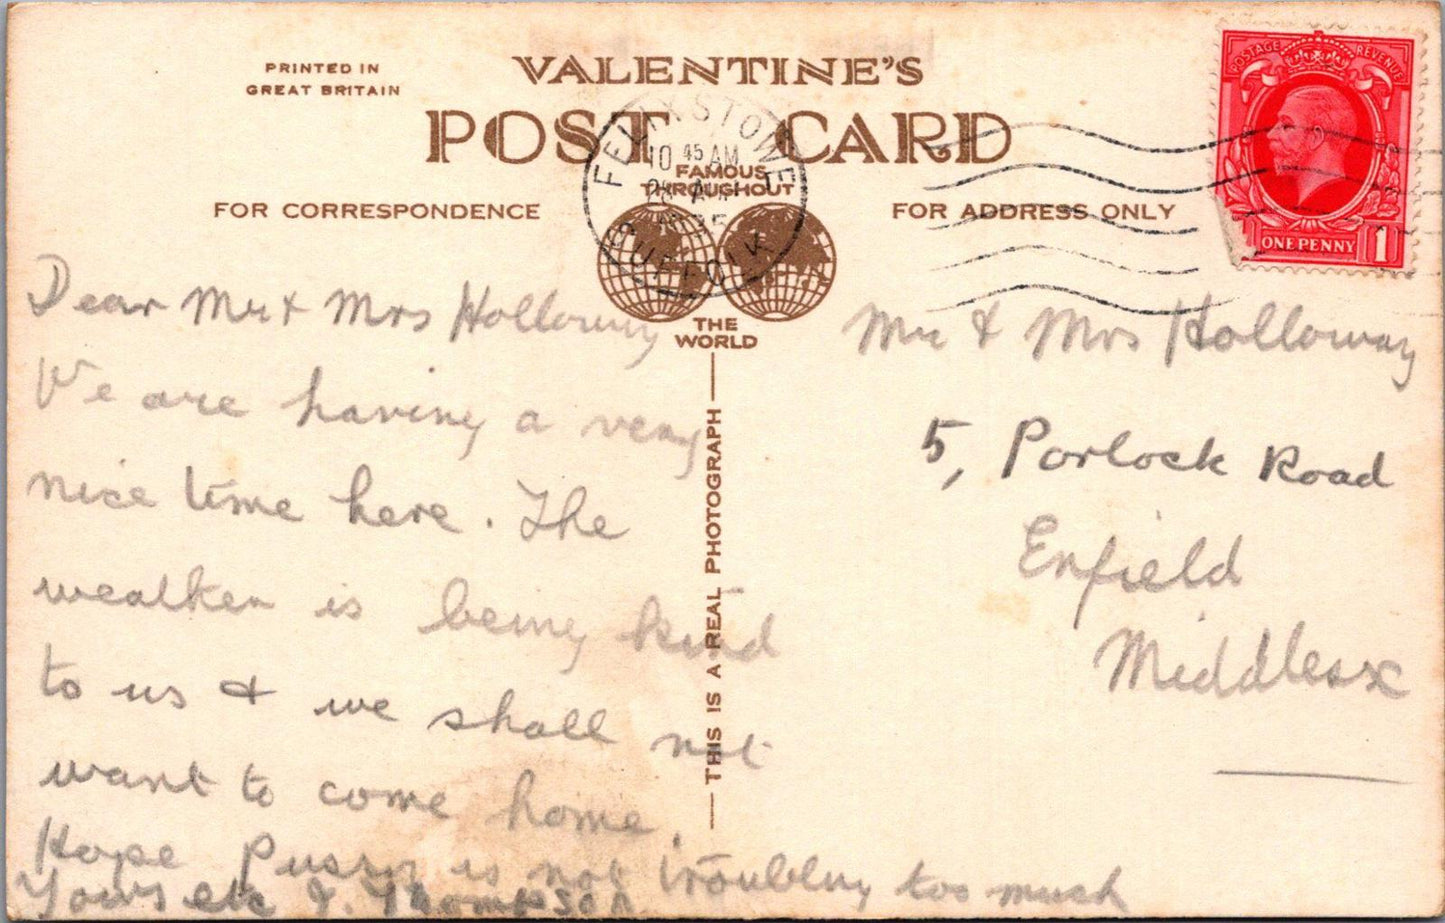 PRINTED IN
GREAT BRITAIN
VALENTINE'S
POST CARD
FAMOUS
THROUGHOUT
THE
WORLD
FOR CORRESPONDENCE
FOR ADDRESS ONLY
FELIXSTOWE
10 45 AM
SUFFOLK
POSTAGE REVENUE
ONE PENNY 1
THIS IS A REAL PHOTOGRAPH
Dear Mr & Mrs Holloway
We are having a very
nice time here. The
weather is being kind
to us & we shall not
want to come home.
Hope Pussy is not troubling too much
Yours etc J. Thompson
Mr & Mrs Holloway
5, Porlock Road
Enfield
Middlesex